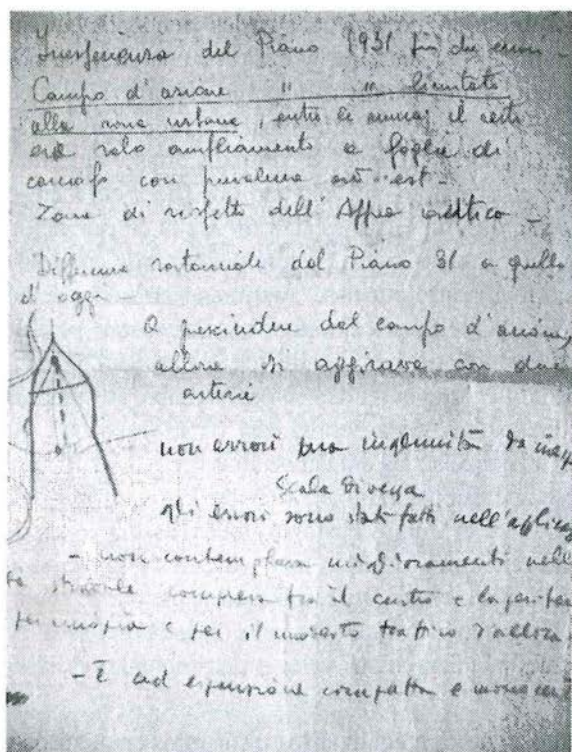 del Piano 1931
Campo d'azione " " limitato
alla zona urbana, entro le mura; il resto
era solo ampliamento a foglie di
carciofo con prevalenza est -
Zona di rispetto dell'Appia antica -
Differenza sostanziale dal Piano 31 a quello
d'oggi -
a prescindere dal campo d'azione,
allora si aggirava con due
arterie
non errori ma ingenuità da
Scala diversa
gli errori sono stati fatti nell'
- non contemplava miglioramenti
stradale compresa fra il centro e la
e per il modesto traffico d'allora
- È ad espansione compatta e